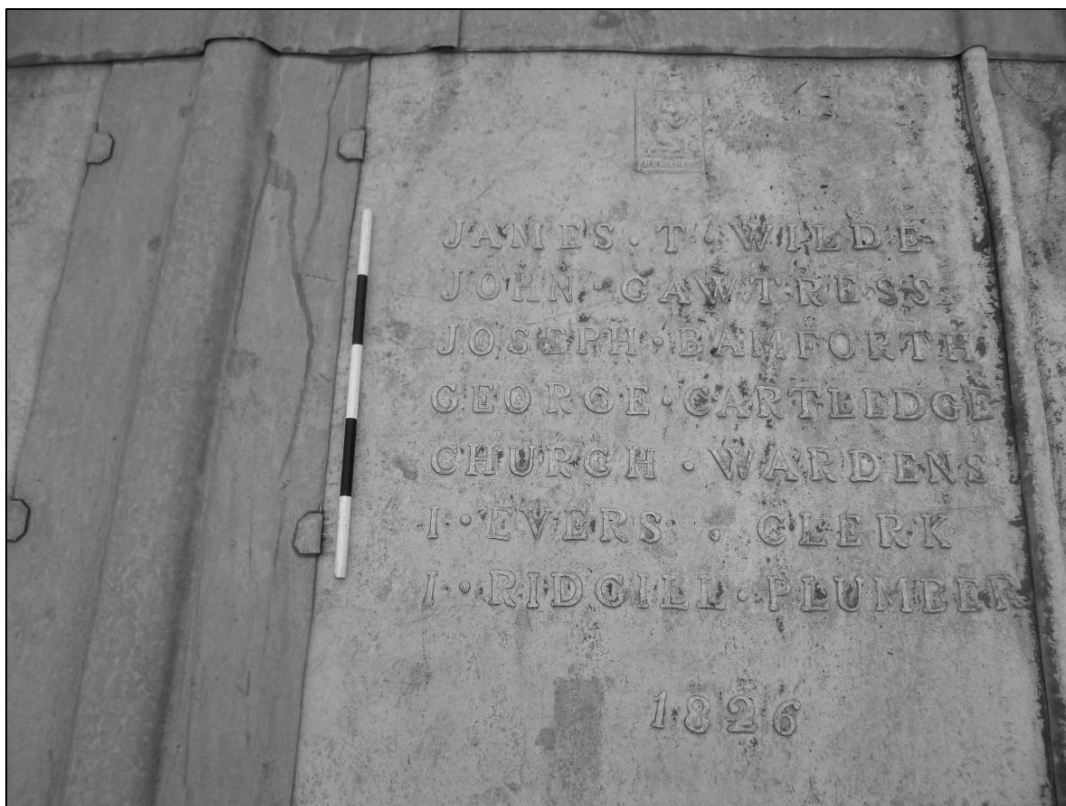 JAMES · T · WILDE
JOHN · GAWTRESS
JOSEPH · BAMFORTH
GEORGE · CARTLEDGE
CHURCH · WARDENS
I · EVERS · CLERK
I · RIDGILL · PLUMBER
1826